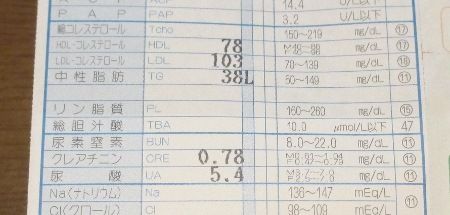 14.4 U/L以下
PAP PAP 3.2 U/L以下
総コレステロール Tcho 150~219 mg/dL ⑰
HDL-コレステロール HDL 78 mg/dL ⑰
LDL-コレステロール LDL 103 70~139 mg/dL ⑱
中性脂肪 TG 38L 50~149 mg/dL ⑪
リン脂質 PL 160~260 mg/dL ⑮
総胆汁酸 TBA 10.0 μmol/L以下 47
尿素窒素 BUN 8.0~22.0 mg/dL ⑪
クレアチニン CRE 0.78 mg/dL ⑪
尿酸 UA 5.4 mg/dL ⑪
Na(ナトリウム) Na 136~147 mEq/L ⑪
Cl(クロール) Cl 98~109 mEq/L